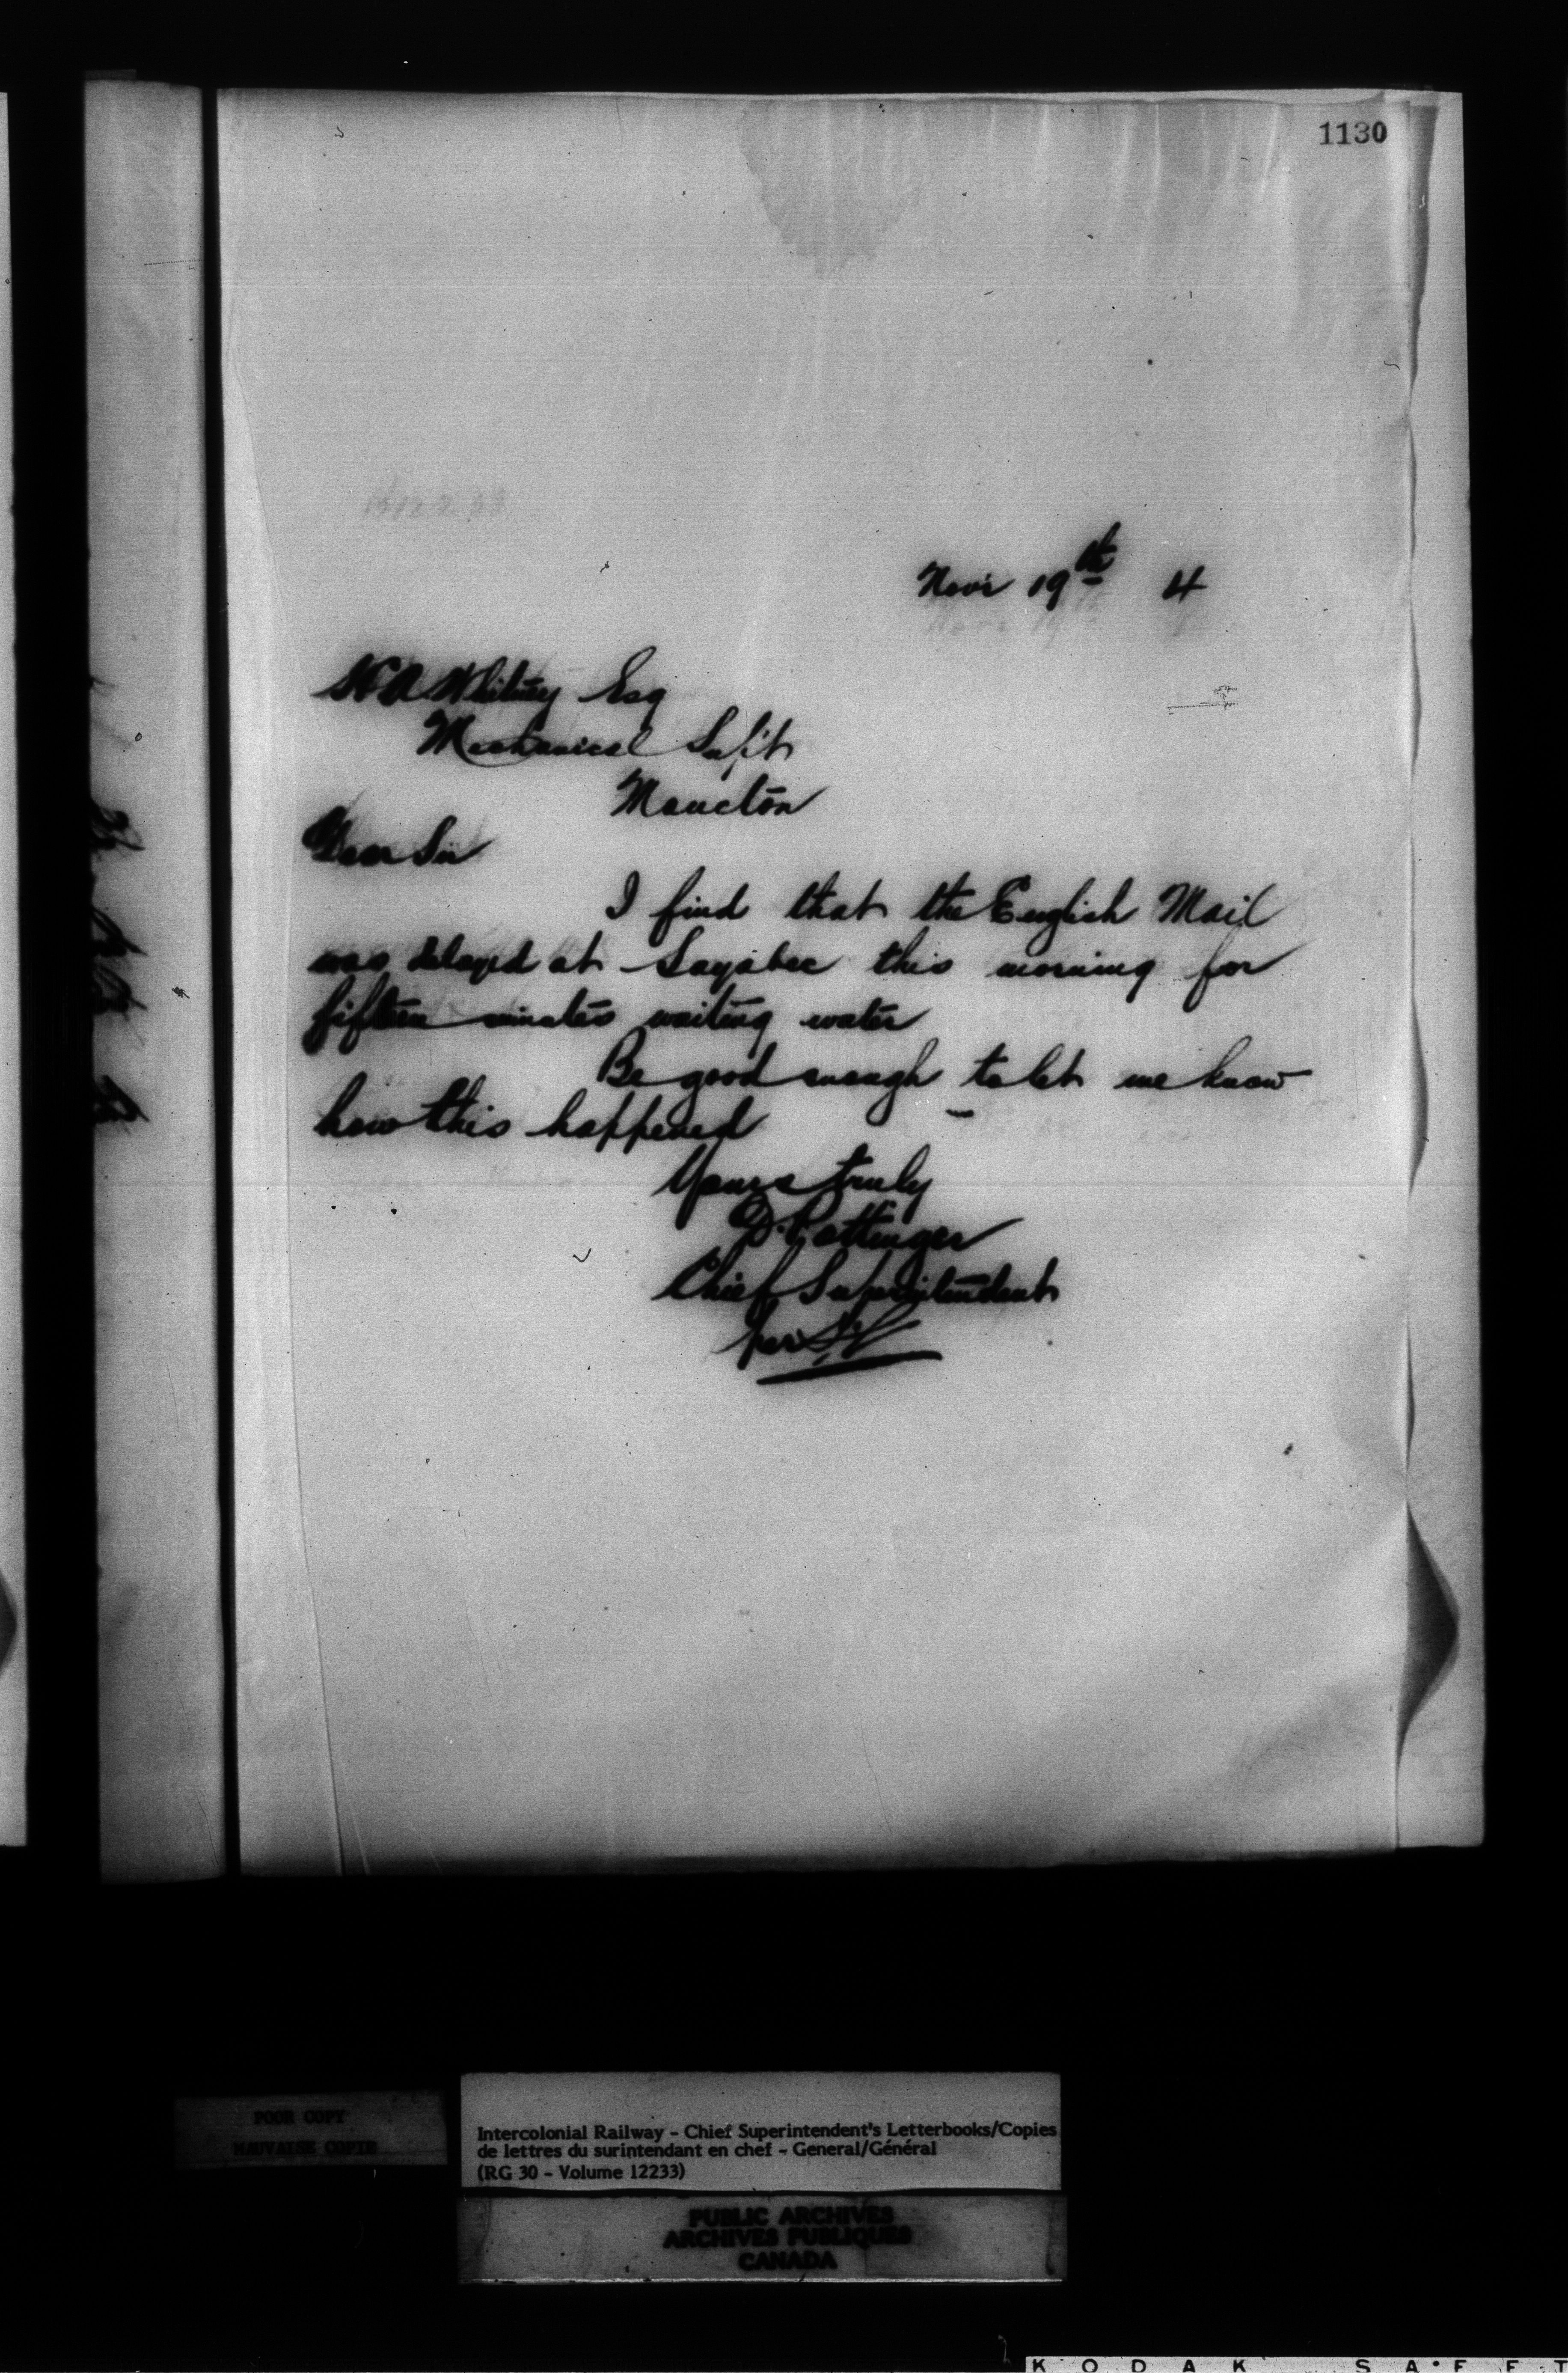 1130
Novr 19th 4
H A Whitney Esq
Mechanical Supt
Moncton
Dear Sir
I find that the English Mail
was delayed at Sayabec this morning for
fifteen minutes waiting water
Be good enough to let me know
how this happened
Yours truly
D. Pottinger
Chief Superintendent
per
POOR COPY
MAUVAISE COPIE
Intercolonial Railway - Chief Superintendent's Letterbooks/Copies
de lettres du surintendant en chef - General/Général
(RG 30 - Volume 12233)
PUBLIC ARCHIVES
ARCHIVES PUBLIQUES
CANADA
KODAK SAFET